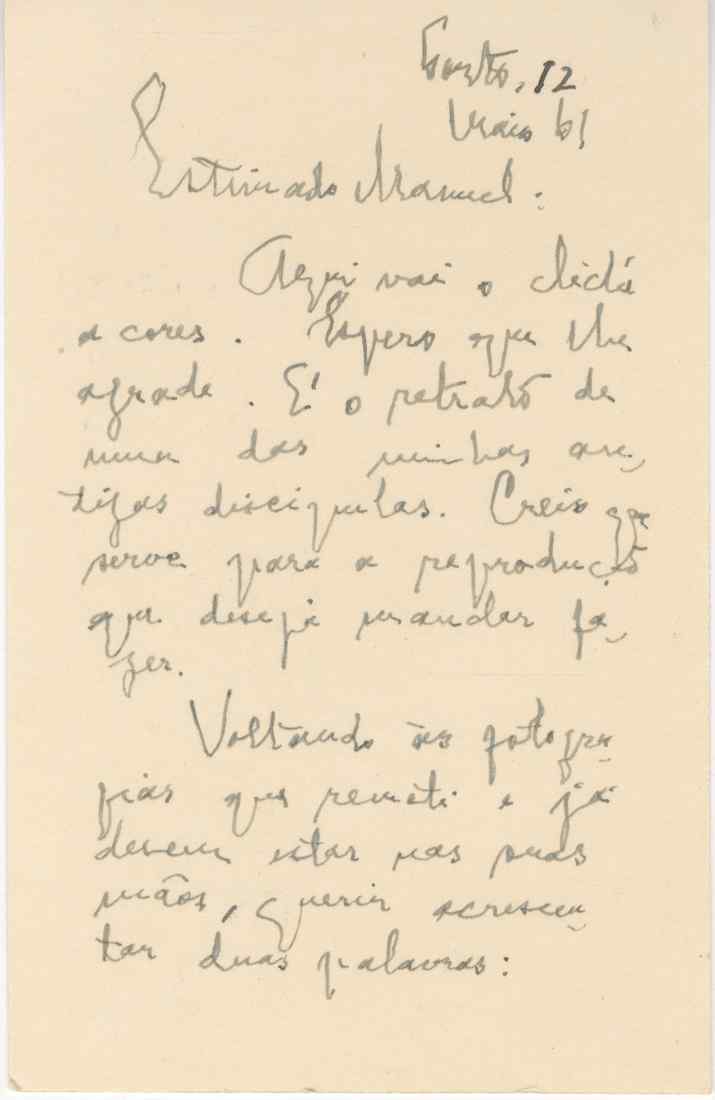 Porto, 12
Maio 61
Estimado Manuel:
Aqui vai o cliché
a cores. Espero que lhe
agrade. É o retrato de
uma das minhas an-
tigas discipulas. Creio que
serve para a reprodução
que deseja mandar fa-
zer.
Voltando às fotogra-
fias que remeti e já
devem estar nas suas
mãos, queria acrescen-
tar duas palavras: